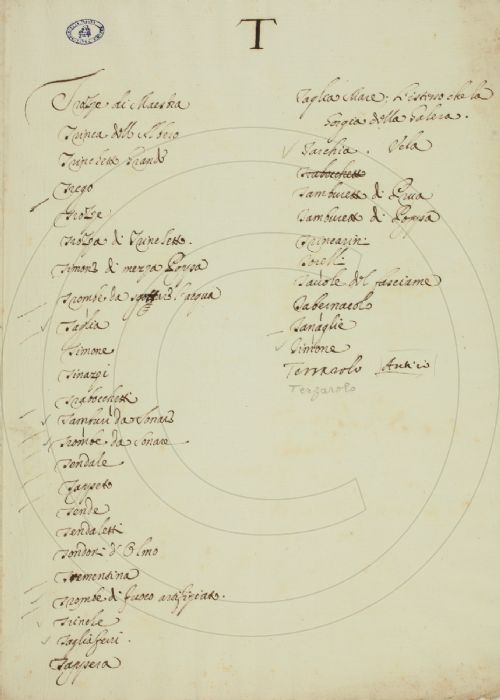 T
Trozze di Maestra
Trinca dell Albero
Trinchetto grande
Trego
Trozze
Trozza di Trinchetto.
Timone di mezza
Trombe da acqua
Taglia
Timone
Tinazzi
Trabocchetti
Tamburi da Sonare
Trombe da Sonare
Tendale
Tappeto
Tende
Tendaletti
Tondori d'Olmo
Trementina
Trombe di fuoco artifiziato.
Trincle
Tagliaferri.
Tappera
Taglia Mare; L'istesso che la
della Galera.
Tarchia. Vela
Trabocchetto
Tamburetto di Prua
Tamburetto di Poppa
Trincarin
Torelli
Tavole del fasciame
Tabernacolo
Tanaglie
Timone
Terzarolo Antico
Terzarolo